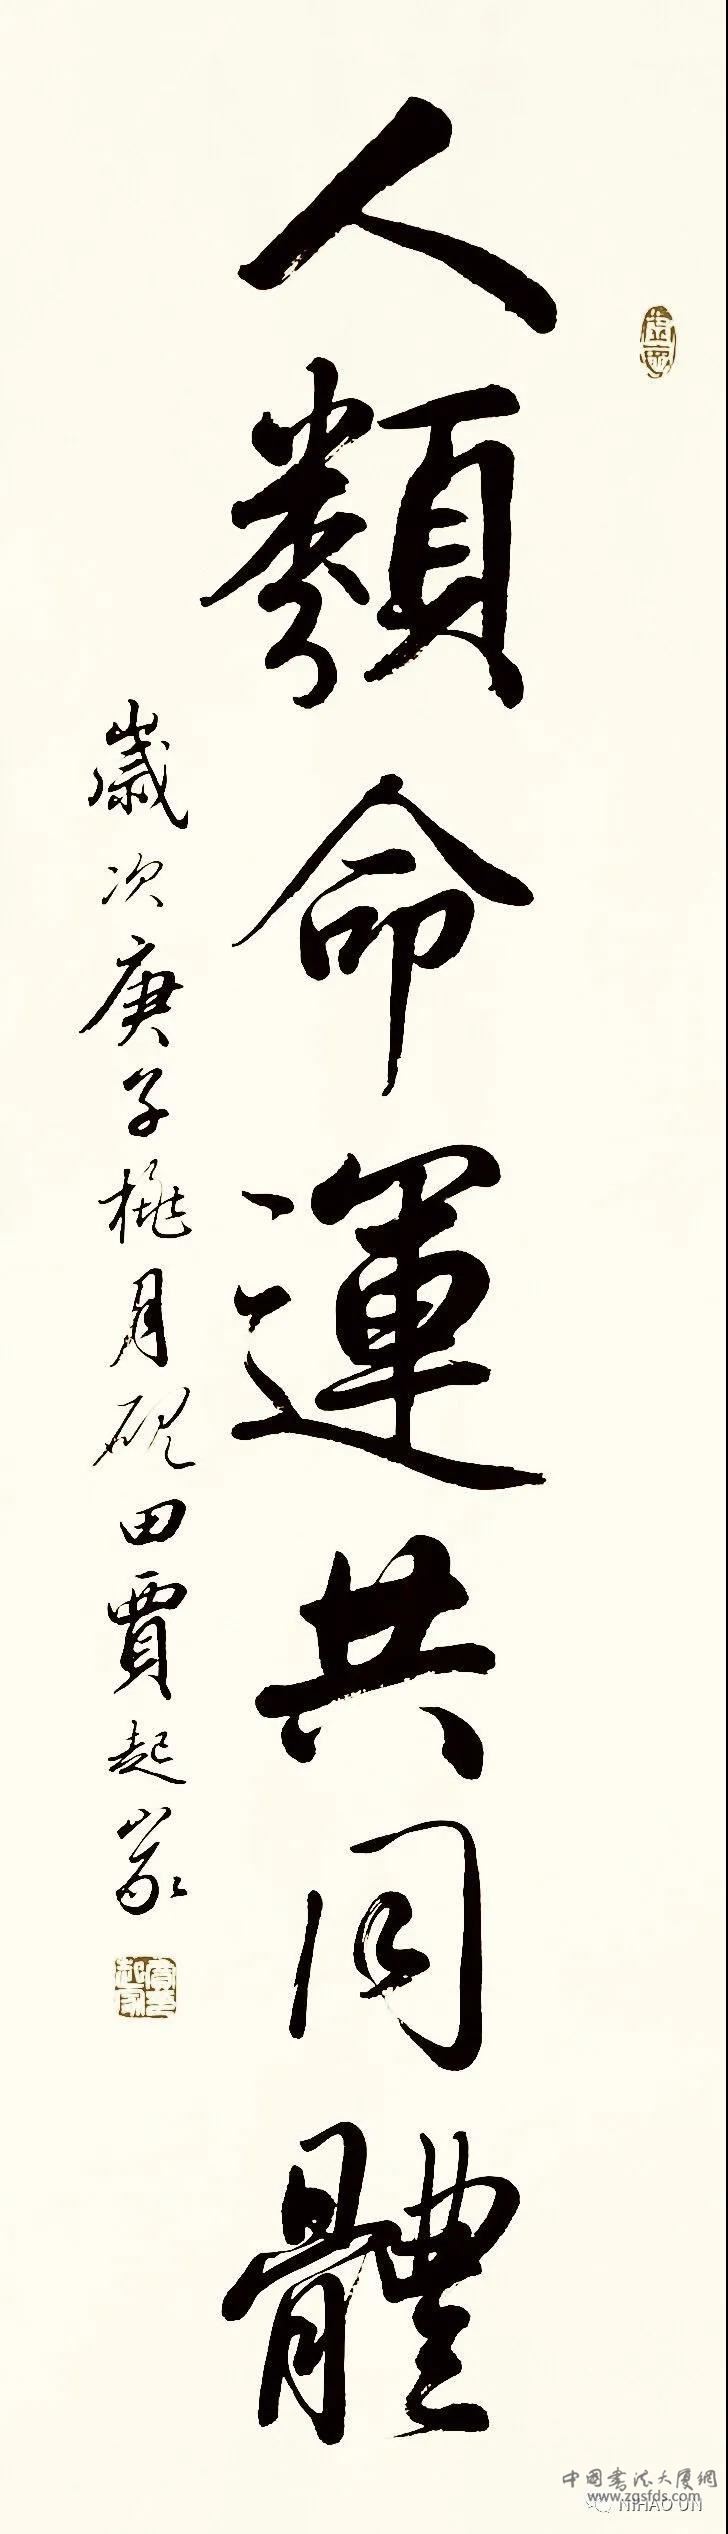 人類命運共同體
歲次庚子桃月硯田賈起家
中國書法大廈網
www.zgsfds.com
NIHAO UN